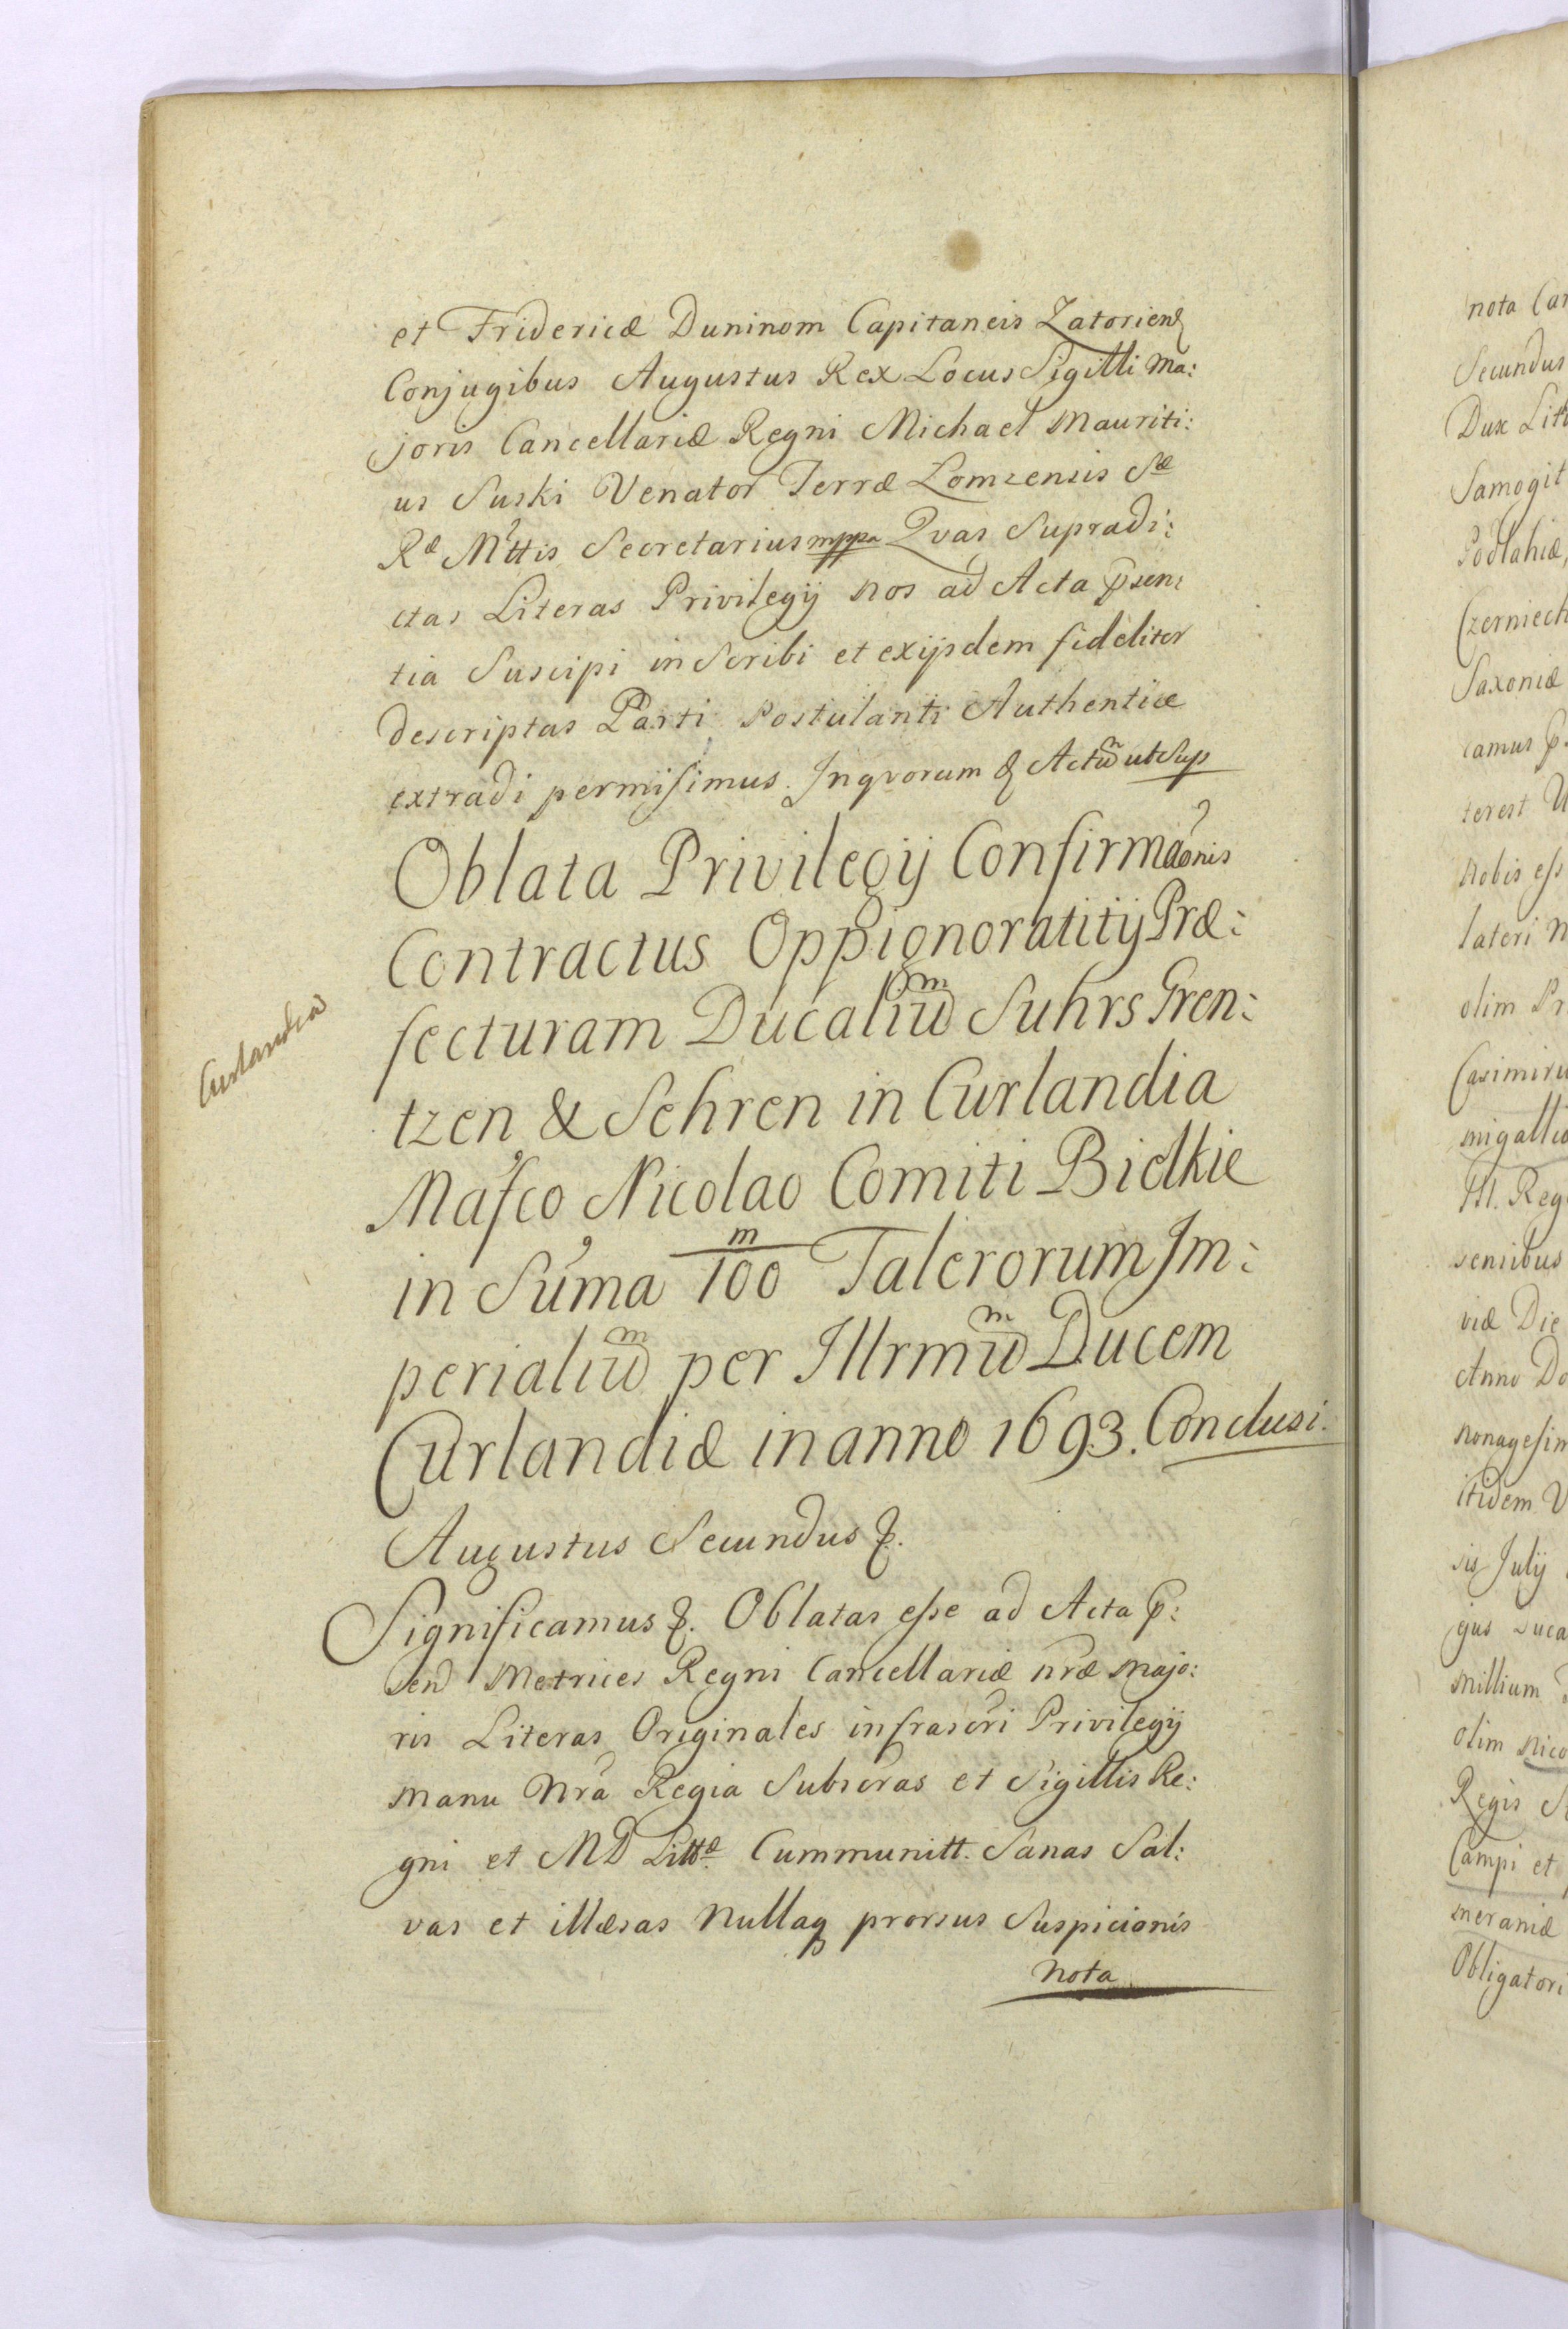 et Fridericæ Duninom Capitaneis Zatorien
Conjugibus Augustus Rex Locus Sigilli Ma:
joris Cancellariæ Regni Michael Mauriti:
us Suski Venator Terræ Lomzensis Sæ
Ræ Mttis Secretarius mppa Qvas Supradi:
ctas Literas Privilegij nos ad Acta psen:
tia Suscipi inscribi et exijsdem fideliter
descriptas Parti Postulanti Authentice
extradi permisimus. Inqvorum & Actum ut Sup
Oblata Privilegij Confirmaonis
Contractus Oppignoratitij Præ:
fecturam Ducalium Suhrs Gren:
tzen & Sehren in Curlandia
Mafco Nicolao Comiti Bielkie
in Suma m/100 Talerorum Im:
perialium per Illrmum Ducem
Curlandiæ in anno 1693. Conclusi.
Curlandia
Augustus Secundus &.
Significamus &. Oblatas esse ad Acta p:
sen Metrices Regni Cancellariæ nræ Majo:
ris Literas Originales infrascri Privilegij
manu Nra Regia Subscras et Sigillis Re:
gni et MD Littæ Cummunitt. Sanas Sal:
vas et illæsas Nullaq prorsus Suspicionis
Nota
nota
Secundus
Dux
Samogit
Podlahiæ,
Czerniech
Saxoniæ
camus p.
terest
Nobis ess
lateri
olim
Casimiru
migallia
Ill. Reg
sensibus
viæ Die
Anno Do
Nonagesim
itidem
sis Julij
jus Duca
Millium
olim Nico
Regis
Campi et
meraniæ
Obligatori